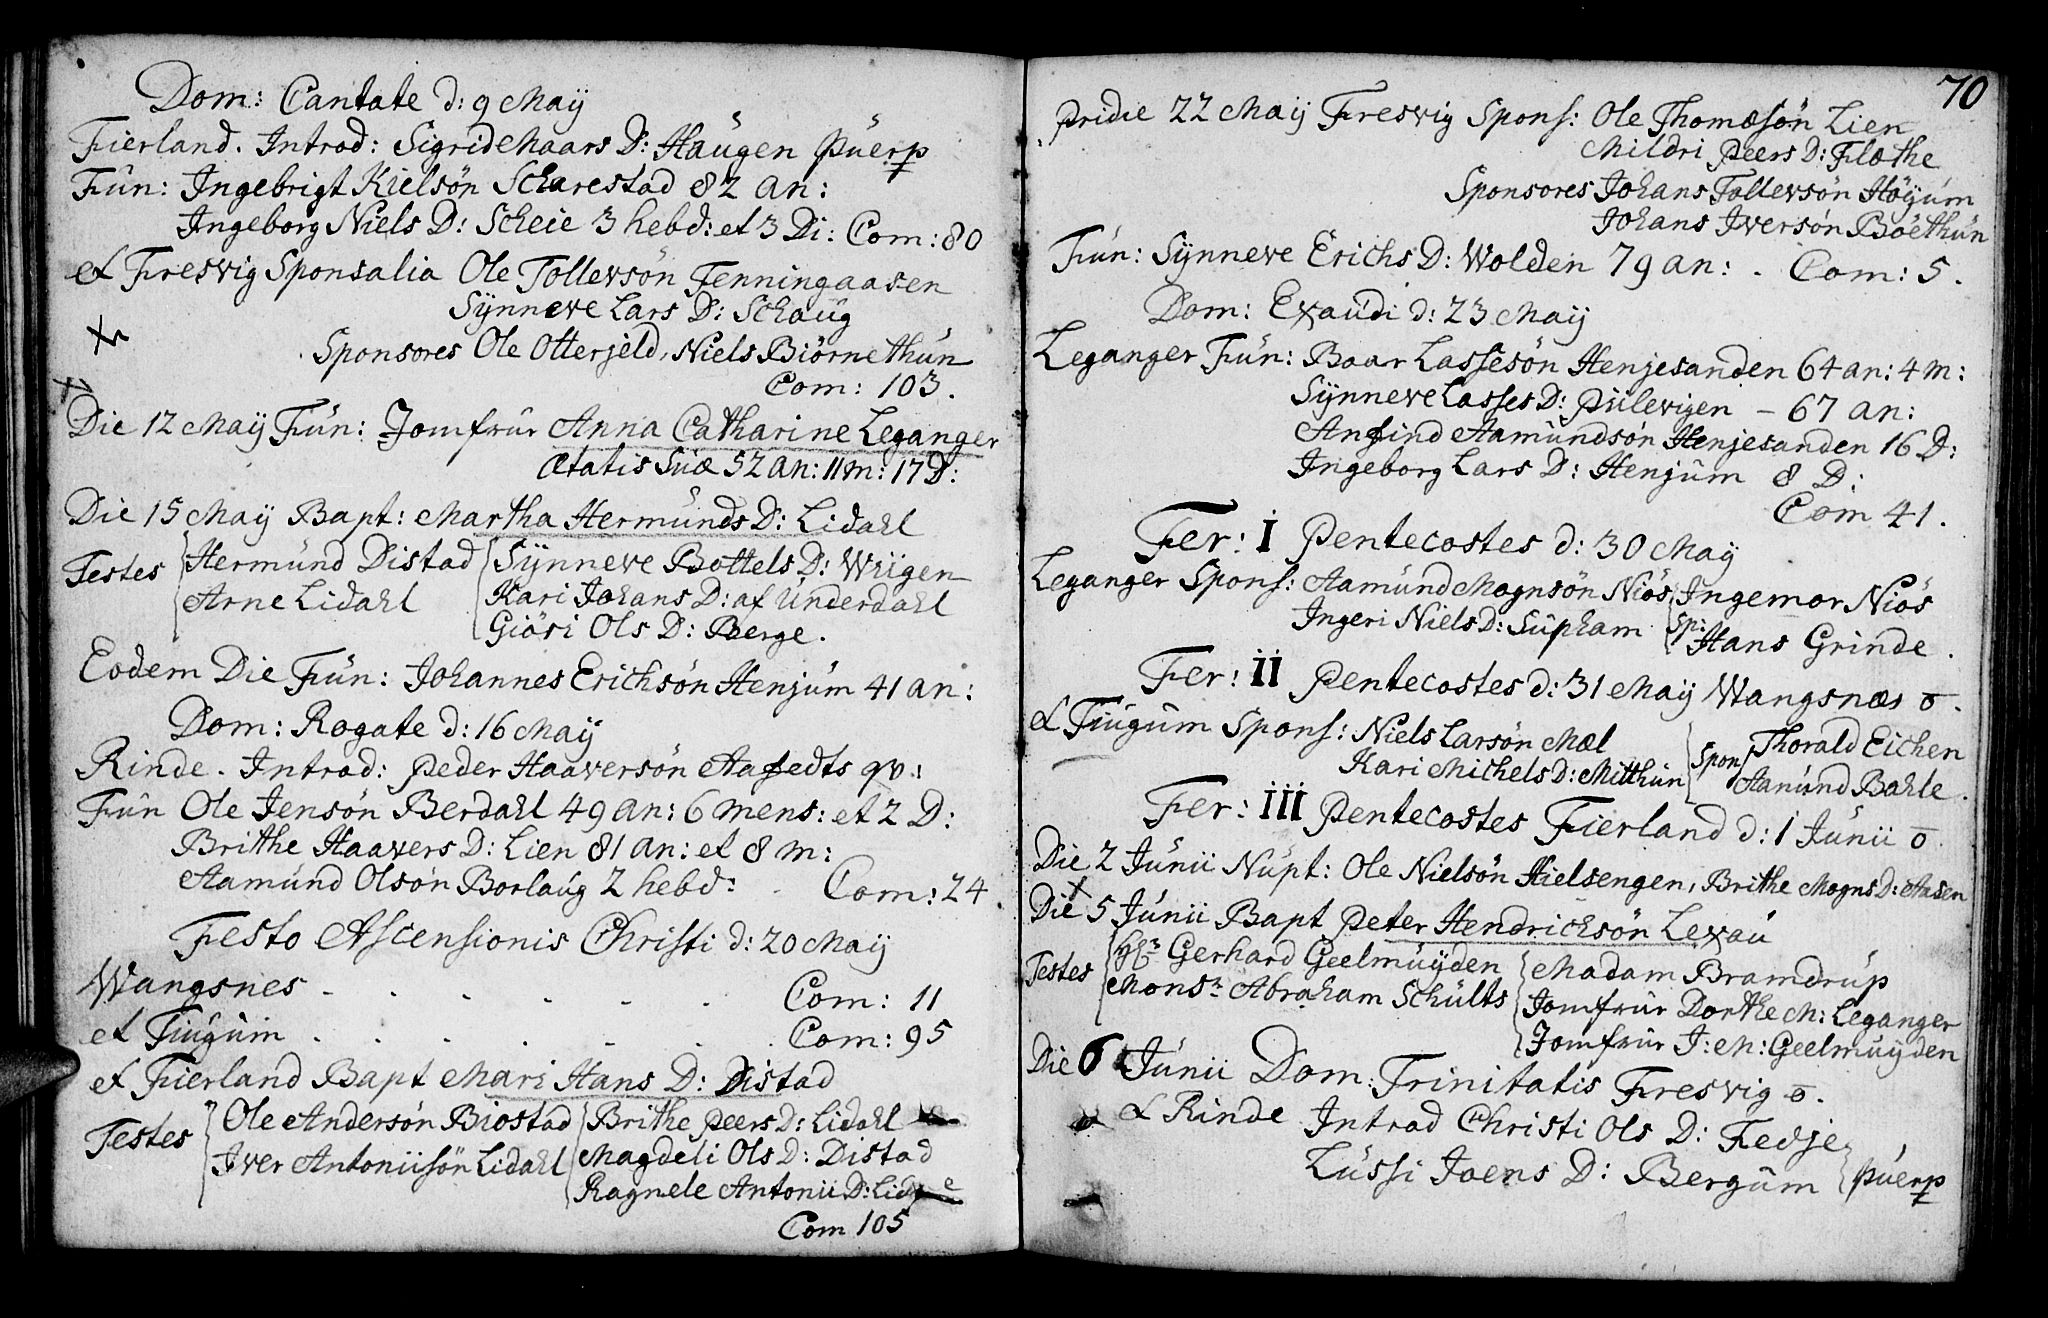 Dom: Cantate d: 9 Maÿ
Fierland. Introd: Sigrid Maars D: Haugen Puerp
Fun: Ingebrigt Kielsön Scharestad 82 an:
Ingeborg Niels D: Scheie 3 hebd: et 3 Di: Com: 80
et Fresvig Sponsalia Ole Tollevsön Fenningaasen
Sÿnneve Lars D: Schaug
Sponsores Ole Otterjeld, Niels Biörnethun
Com: 103.
Die 12 Maÿ Fun: Jomfrur Anna Catharine Leganger
Ætatis Suæ 52 an: 11 m: 17 D:
Die 15 Maÿ Bapt: Martha Hermunds D: Lidahl
Testes Hermund Distad Sÿnneve Bottels D: Wrigen
Arne Lidahl Kari Johans D: af Underdahl
Giösi Ols D: Berge.
Eodem Die Fun: Johannes Erichsön Henjum 41 an:
Dom: Rogate d: 16 Maÿ
Rinde. Introd: Peder Haaversön Aafedts qv:
Fun Ole Jensön Berdahl 49 an: 6 mens: et 2 D:
Brithe Haavers D: Lien 81 an: et 8 m:
Aamund Olsön Borlaug 2 hebd: . Com: 24
Festo Ascensionis Christi d: 20 Maÿ
Wangsnes . . . . . . Com: 11
et Tiugum . . . . . . Com: 95
et Fierland Bapt Mari Hans D: Distad
Testes Ole Andersön Biostad Brithe Peers D: Lidahl
Iver Antoniisön Lidahl Magdeli Ols D: Distad
Ragnele Antonii D:
Com 105
70
Pridie 22 Maÿ Fresvig Spons: Ole Thomæsön Lien
Mildri Peers D: Flæthe
Sponsores Johans Tollevsön Höÿum
Johans Iversön Böethun
Fun: Sÿnneve Erichs D: Wolden 79 an: . Com: 5.
Dom: Exaudi d: 23 Maÿ
Leganger Fun: Baar Lassesön Henjesanden 64 an: 4 m:
Sÿnneve Lasses D: Pilevigen - 67 an:
Anfind Aamundsön Henjesanden 16 D:
Ingeborg Lars D: Henjum 8 D:
Com 41.
Fer: I Pentecostes d: 30 Maÿ
Leganger Spons: Aamund Mognsön Niös Ingemor Niös
Ingeri Niels D: Supham Sp: Hans Grinde.
Fer: II Pentecostes d: 31 Maÿ Wangsnæs o.
et Tiugum Spons: Niels Larsön Mæl Spons Thorald Eichen
Kari Michels D: Mitthun Aamund Bahle.
Fer: III Pentecostes Fierland d: 1 Junii o.
Die 2 Junii Nupt: Ole Nielsön Hielsengen, Brithe Mogns D: Aasen
Die 5 Junii Bapt Peter Hendrichsön Lexau
Testes Hr Gerhard Geelmuÿden Madam Bramdrup
Monsr Abraham Schults Jomfrur Dorthe M: Leganger
Jomfrur J: M: Geelmuÿden
Die 6 Junii Dom: Trinitatis Fresvig o.
et Rinde Introd Christi Ols D: Fedje
Lussi Joens D: Bergum Puerp